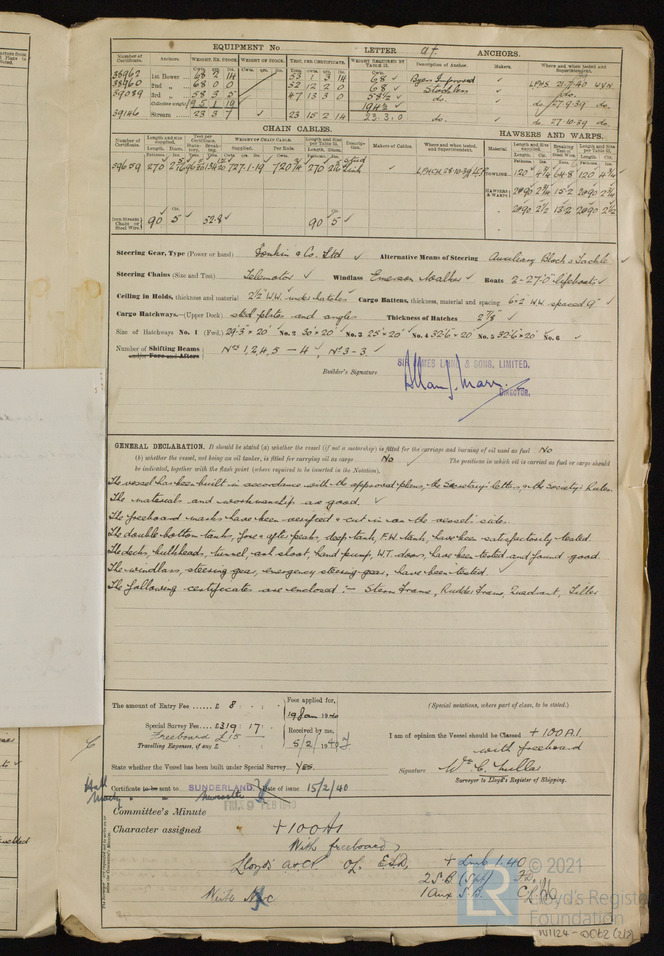 EQUIPMENT No LETTER at. ANCHORS.
Number of Certificate. Anchors. WEIGHT, EX. STOCK. WEIGHT OF STOCK. TEST, PER CERTIFICATE. WEIGHT REQUIRED BY TABLE 31. Description of Anchor. Makers. Where and when tested and Superintendent.
38962 1st Bower 68 2 14 53 1 3 14 68 ✓ Byers Improved ✓ LPHS 21.
38960 2nd „ 68 0 0 52 12 2 0 68 ✓ Stockless ✓ do.
39089 3rd „ 58 3 5 47 13 3 0 58½ ✓ do. ✓ do. 27.9.39 do.
Collective weight 195 1 19 194½ ✓
39146 Stream 23 3 7 ✓ 23 15 2 14 23.3.0 do. ✓ do. 27.10.39 do.
CHAIN CABLES. HAWSERS AND WARPS.
Number of Certificate. Length and size supplied. Test per Certificate. WEIGHT OF CHAIN CABLE. Length and size per Table 31. Description. Makers of Cables. Where and when tested, and Superintendent. Material. Length and Size supplied. Breaking Test of Steel Wire. Length and Size per Table 31.
Length. Diam. Supplied. Per Rule. Length. Diam. Length. Cir.
59659 270 727.1.19 ✓ 720¾ 270 Stud Link ✓ TOWLINE 120 4¾ 64.8 120 4¾ ✓
HAWSERS & WARPS 2@90 2¾ 15.2 2@90 2¾
2@90 2½ 13.2 2@90 2½
Iron Stream Chain or Steel Wire 90 5 ✓ 52.8 ✓ 90 5 ✓
Steering Gear, Type (Power or hand) Donkin & Co. Ltd ✓ Alternative Means of Steering Auxiliary Block & Tackle ✓
Steering Chains (Size and Test) Telemotor ✓ Windlass Emerson Walker ✓ Boats 2-27.0" lifeboats ✓
Ceiling in Holds, thickness and material 2½" W.W. under hatches Cargo Battens, thickness, material and spacing 6×2 W.W. spaced 9" ✓
Cargo Hatchways.—(Upper Deck) steel plates and angles Thickness of Hatches 2⅞" ✓
Size of Hatchways No. 1 (Fwd.) 29'.3"×20' No. 2 30'×20' ✓ No. 3 25'×20' ✓ No. 4 32'.6"×20' No. 5 32'.6"×20' No. 6 ✓
Number of Shifting Beams and/or Fore and Afters Nos 1, 2, 4, 5 – 4 ✓, No 3 – 3 ✓
SIR JAMES LAING & SONS, LIMITED.
Builder's Signature
DIRECTOR.
GENERAL DECLARATION. It should be stated (a) whether the vessel (if not a motorship) is fitted for the carriage and burning of oil used as fuel No
(b) whether the vessel, not being an oil tanker, is fitted for carrying oil as cargo No The positions in which oil is carried as fuel or cargo should
be indicated, together with the flash point (where required to be inserted in the Notation).
The vessel has been built in accordance with the approved plans, the Secretary's letters, & the Society's Rules.
The materials and workmanship are good. ✓
The freeboard marks have been verified & cut in on the vessel's sides.
The double bottom tanks, fore & after peaks, deep tank, F.W. tanks, have been satisfactorily tested.
The decks, bulkheads, tunnel, ash shoot, hand pump, W.T. doors, have been tested and found good.
The windlass, steering gear, emergency steering gear, have been tested. ✓
The following certificates are enclosed :— Stern Frame, Rudder Frame, Quadrant, Tiller
The amount of Entry Fee ...... £ 8 : :
Special Survey Fee .... £319 : 17 :
Freeboard £15
Travelling Expenses, if any £
Fees applied for,
19 Jan 1940
Received by me,
5/2 1940
(Special notations, where part of class, to be stated.)
I am of opinion the Vessel should be Classed +100A1.
with freeboard
State whether the Vessel has been built under Special Survey Yes.
Signature Wm C. Millar
Surveyor to Lloyd's Register of Shipping.
Certificate to be sent to SUNDERLAND. Date of issue 15/2/40
FRI. 9 FEB 1940
Committee's Minute
Character assigned +100A1
With freeboard
Lloyd's A & CP
+ Lmb 1.40
2 S.B. (Spt) F.D.
1 Aux S.B. CL
Write
© 2021
Lloyd's Register
Foundation
LR
W1124-0062 (2/2)